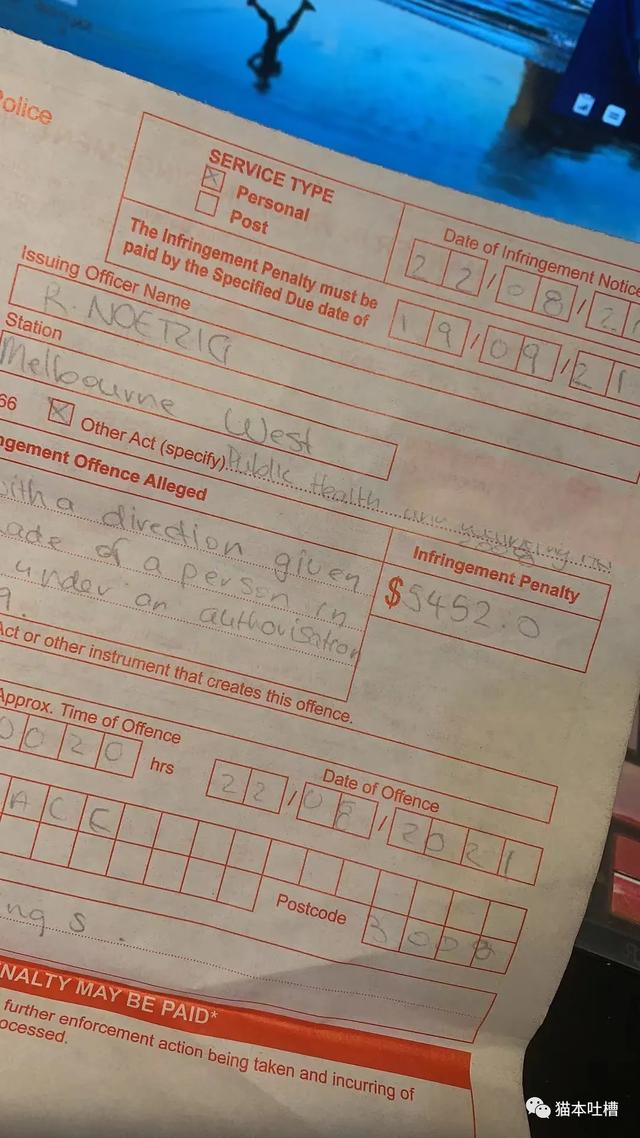 Police
SERVICE TYPE
Personal
Post
The Infringement Penalty must be
paid by the Specified Due date of
Date of Infringement Notice
22/08/21
19/09/21
Issuing Officer Name
R. NOETZIG
Station
Melbourne West
66
Other Act (specify) Public Health
ngement Offence Alleged
with a direction given
ade of a person in
under an authorisation
9.
Infringement Penalty
$5452.0
Act or other instrument that creates this offence.
Approx. Time of Offence
0020 hrs
Date of Offence
22/08/2021
ACE
Postcode
3008
ngs.
ENALTY MAY BE PAID*
further enforcement action being taken and incurring of
ocessed.
猫本吐槽